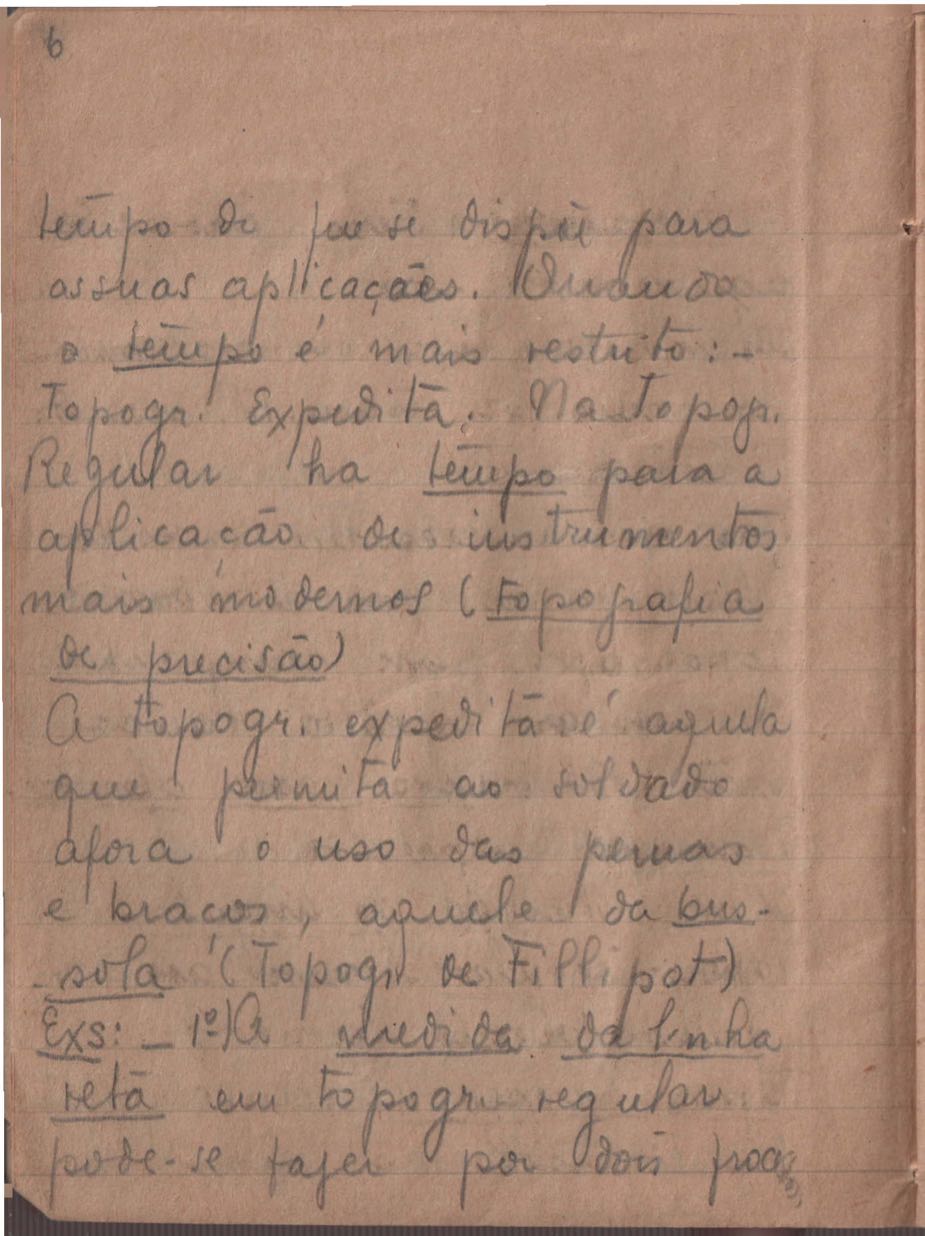 6
tempo de que se dispõe para
as suas aplicações. Quando
o tempo é mais restrito: -
Topogr. Expedita. Na topogr.
Regular ha tempo para a
aplicação de instrumentos
mais modernos (Topografia
de precisão)
A topogr. expedita é aquela
que permita ao soldado
afora o uso das pernas
e braços, aquele da bus-
sola (Topogr. de Fillipot)
Exs: - 1º) A medida da linha
reta em topogr. regular
pode-se fazer por dois